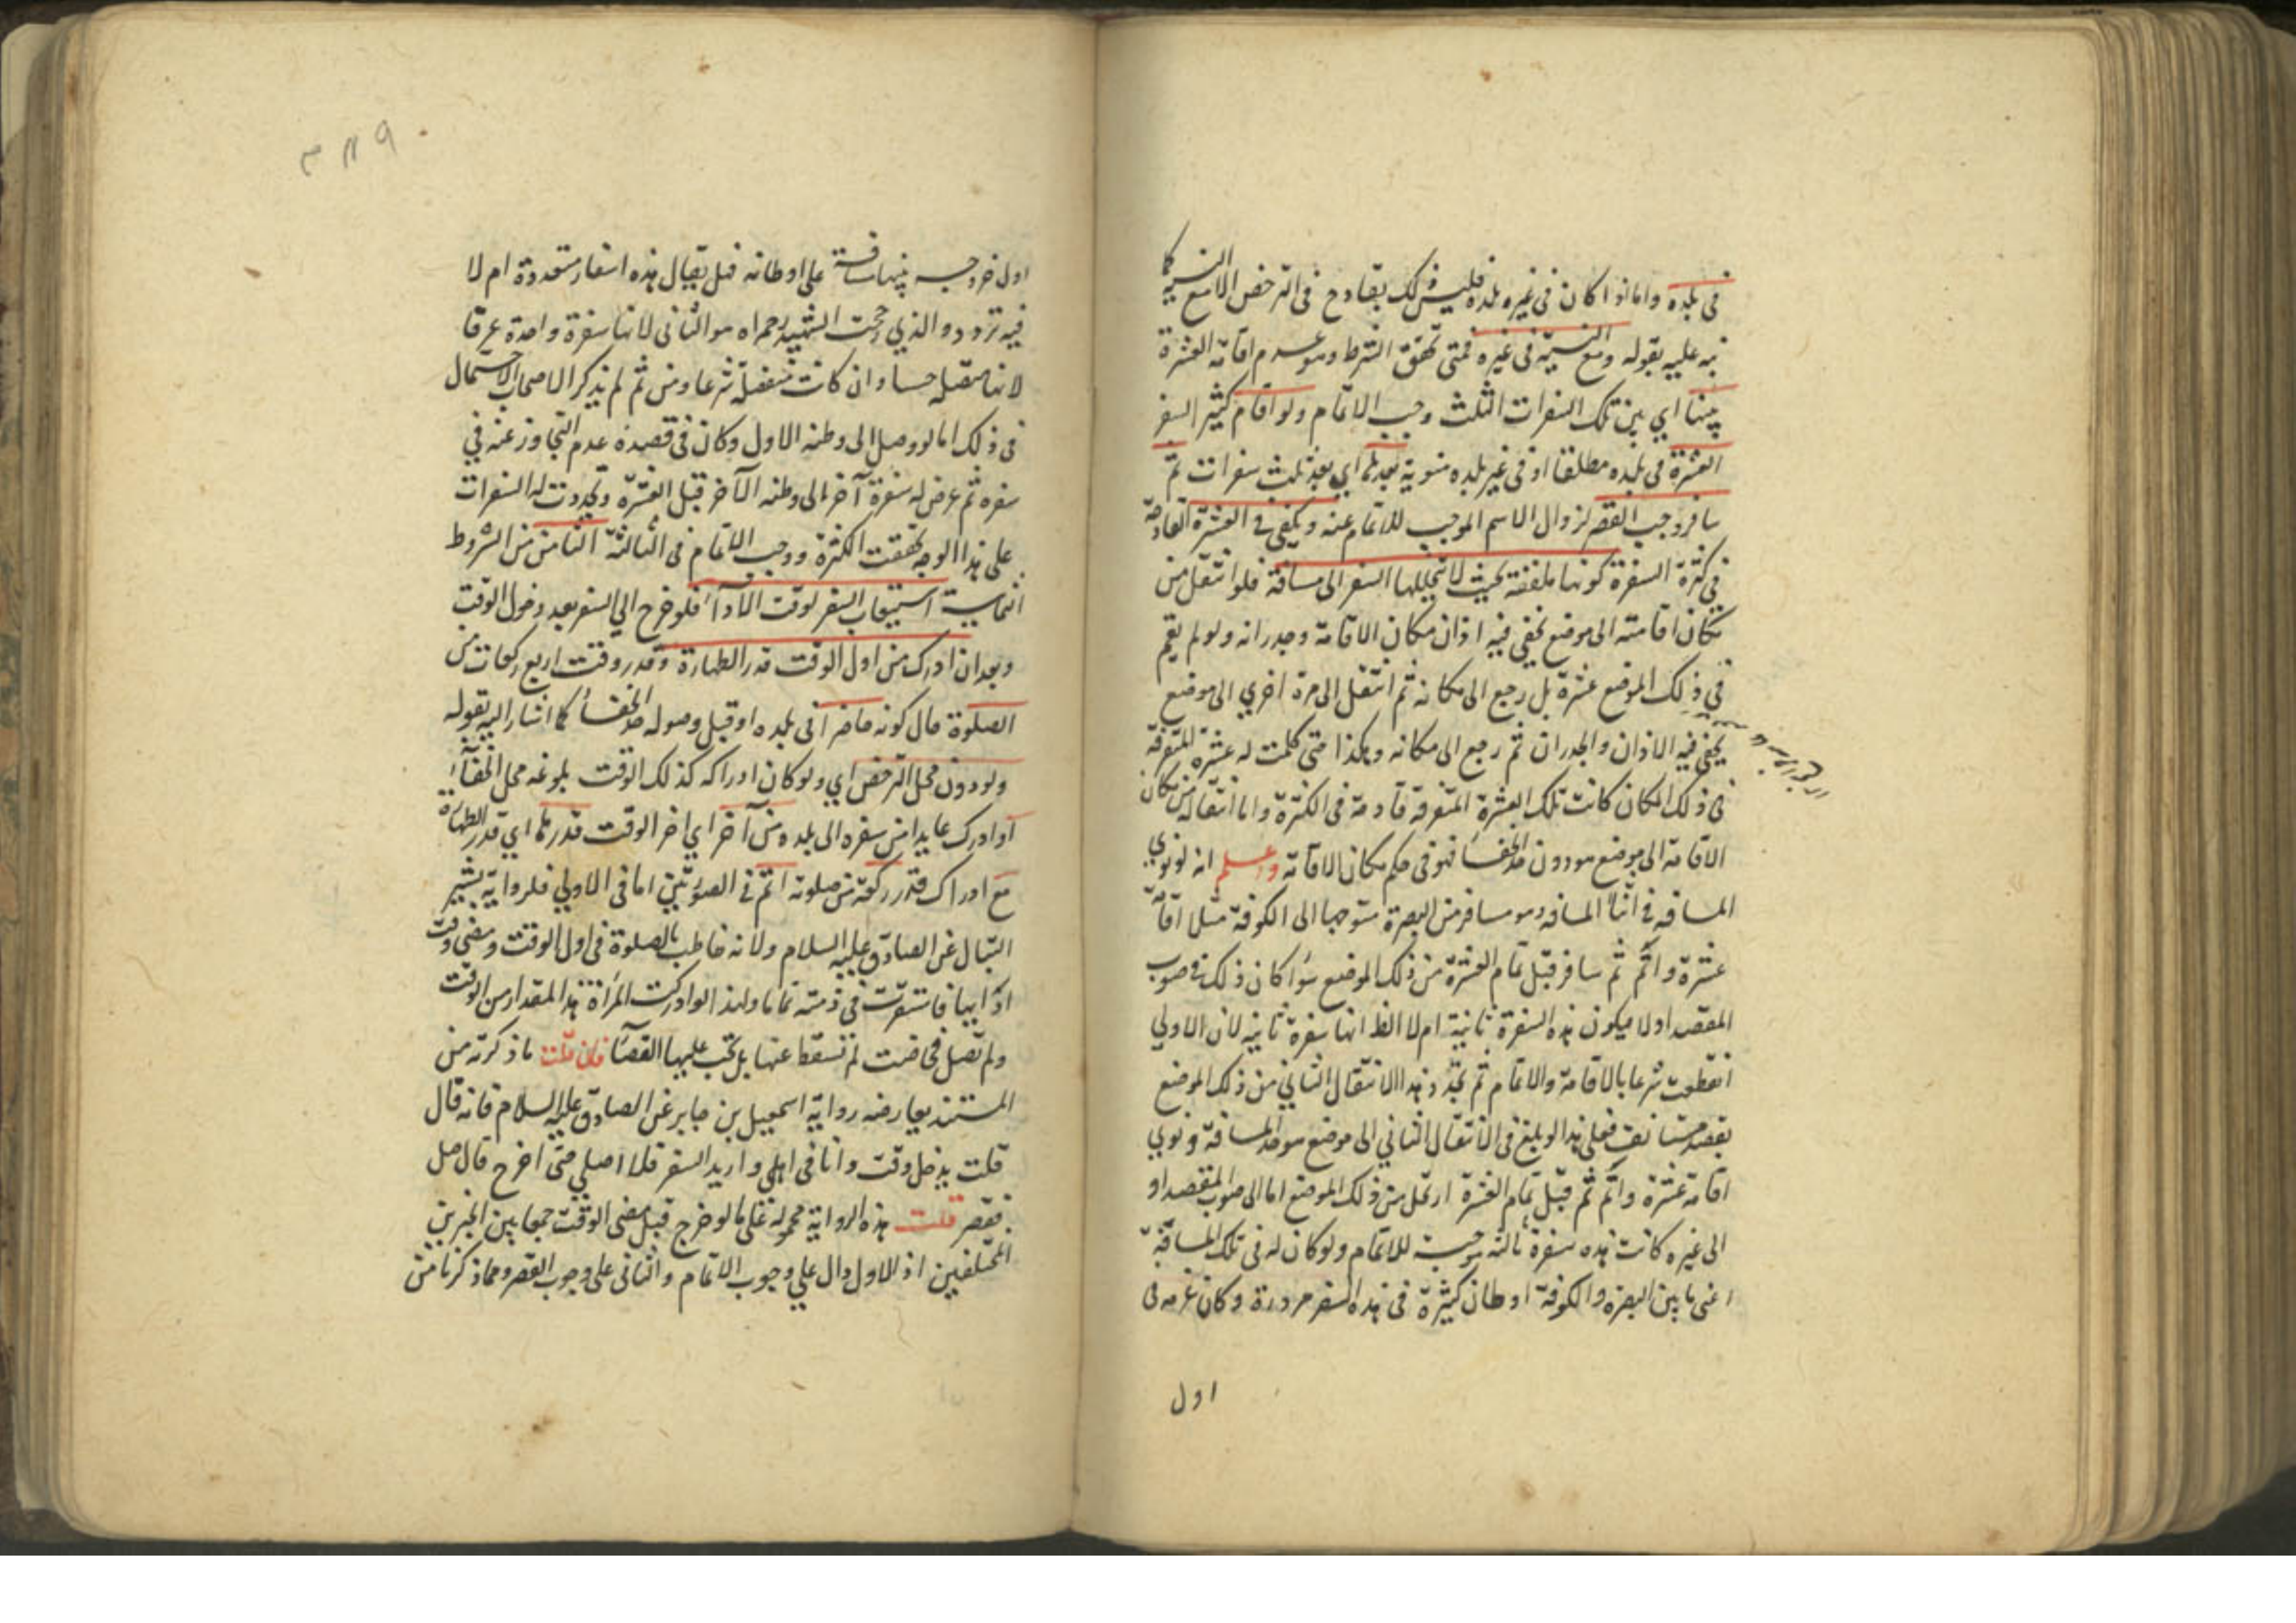 في بلده واما اذا كان في غيره بلده فليس ذلك بقادح في الترخص الا مع النية كما
نبه عليه بقوله ومع النية في غيره فمتى تحقق الشرط وهو عدم اقامة العشرة
بينها اي بين تلك السفرات الثلث وجب الاتمام ولو اقام كثير السفر
العشرة في بلده مطلقا او في غير بلده منوية بعدها اي بعد ثلث سفرات ثم
سافر وجب القصر لزوال الاسم الموجب للاتمام عنه ويكفي في العشرة القادحة
في كثرة السفرة كونها ملفقة بحيث لا يتخللها السفر الى مسافة فلو انتقل من
مكان اقامته الى موضع يخفى فيه اذان مكان الاقامة وجدرانه ولو لم يقم
في ذلك الموضع عشرة بل رجع الى مكانه ثم انتقل الى مرة اخرى الى موضع
يخفى فيه الاذان والجدران ثم رجع الى مكانه وهكذا متى كملت له عشرة المتفرقة
في ذلك المكان كانت تلك العشرة المتفرقة قادحة في الكثرة واما انتقاله من مكان
الاقامة الى موضع هو دون حد الخفاء فهو في حكم مكان الاقامة واعلم انه لو نوى
المسافر في اثناء المسافة وهو مسافر من البصرة متوجها الى الكوفة مثلا اقامة
عشرة واتم ثم سافر قبل تمام العشرة من ذلك الموضع سواء كان ذلك في صوب
المقصد اولا فيكون هذه السفرة ثانية ام لا الظ انها سفرة ثانية لان الاولى
انقطعت شرعا بالاقامة والاتمام ثم تجدد هذا الانتقال الثاني من ذلك الموضع
بقصد مستانف فعلى هذا لو بلغ في الانتقال الثاني الى موضع هو حد المسافة ونوى
اقامة عشرة واتم ثم قبل تمام العشرة ارتحل من ذلك الموضع اما الى صوب المقصد او
الى غيره كانت هذه سفرة ثالثة موجبة للاتمام ولو كان له في تلك المسافة
اعني ما بين البصرة والكوفة اوطان كثيرة في هذه السفر مروره وكان عزمه في
اول
اول خروجه بينها مسافة على اوطانه فهل يقال هذه اسفار متعددة ام لا
فيه تردد والذي رجحت الشهيد رحمه اه هو الثاني لانها سفرة واحدة عرفا
لانها متصلة حسا وان كانت منفصلة شرعا ومن ثم لم يذكر الاصحاب الاحتمال
في ذلك اما لو وصل الى وطنه الاول وكان في قصده عدم التجاوز عنه في
سفره ثم عرض له سفرة آخر الى وطنه الآخر قبل العشرة وتجددت له السفرات
على هذا الوجه تحققت الكثرة ووجب الاتمام في الثالثة الثامن من الشروط
الثمانية استيعاب السفر لوقت الاداء فلو خرج الى السفر بعد دخول الوقت
وبعد ان ادرك من اول الوقت قدر الطهارة وقدر وقت اربع ركعات من
الصلوة حال كونه حاضرا في بلده او قبل وصوله حد الخفاء كما اشار اليه بقوله
ولو دون محل الترخص اي ولو كان ادراكه كذلك الوقت بلوغه محل الخفاء
او ادرك عايدا من سفره الى بلده من آخر اي اخر الوقت قدرها اي قدر الطهارة
مع ادراك قدر ركعة من صلوته اتم في الصورتين اما في الاولى فلرواية بشير
النبال عن الصادق عليه السلام ولانه خاطب بالصلوة في اول الوقت ومضى وقت
ادائها فاستقرت في ذمته تماما ولهذا لو ادركت المراة هذا المقدار من الوقت
ولم تصل فحاضت لم تسقط عنها بل تجب عليها القضاء فان قلت ما ذكرته من
المستند يعارضه رواية اسمعيل بن جابر عن الصادق عليه السلام فانه قال
قلت يدخل وقت وانا في اهلي واريد السفر فلا اصلي حتى اخرج قال صل
وقصر قلت هذه الرواية محمولة على ما لو خرج قبل مضي الوقت جمعا بين الخبرين
المختلفين اذ الاول دال على وجوب الاتمام والثاني على وجوب القصر ومما ذكرنا من